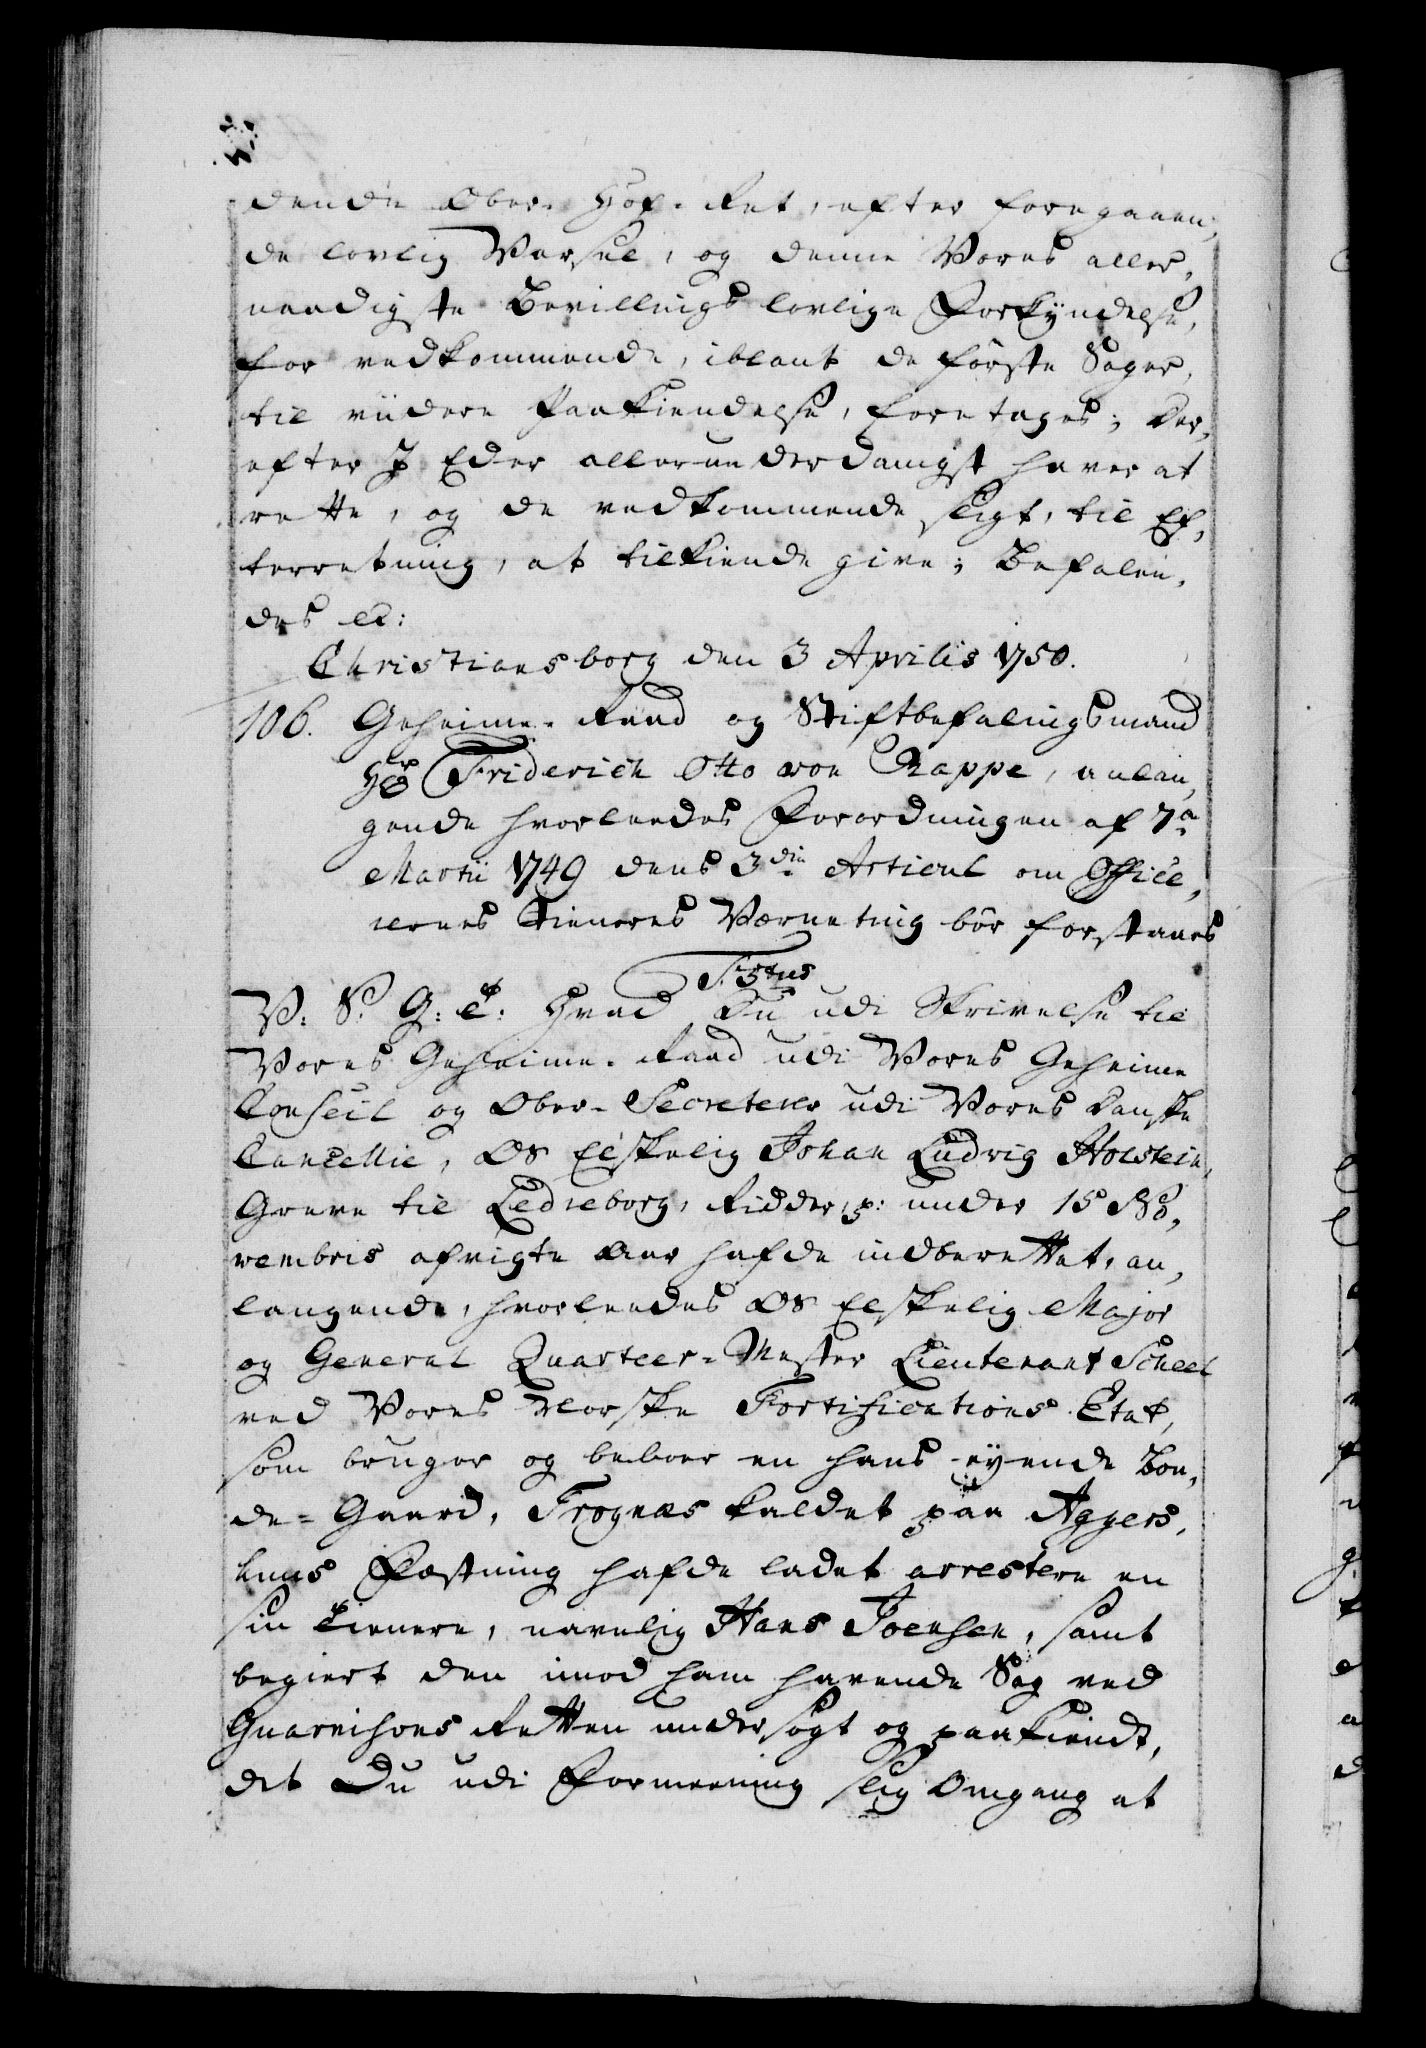 dende Ober-Hof-Ret, efter foregaaen-
de lovlig Varsel, og denne Vores aller-
naadigste Bevillings lovlige Forkyndelse,
for vedkommende, iblant de første Sager,
til viidere Paakiendelse, foretages; Der-
efter I Eder allerunderdanigst haver at
rette, og de vedkommende sligt, til Ef-
terretning, at tilkiende give; Befalen-
des etc:
Christiansborg den 3 Aprilis 1750.
106. Geheime-Raad og Stiftbefalingsmand
Hr Friderich Otto von Rappe, anlan-
gende hvorleedes Forordningen af 7de
Martii 1749 dens 3die Articul om Office-
rernes Tieneres Værneting bør forstaaes
F: 5tus
V: S: G: T: Hvad Du udi Skrivelse til
Vores Geheime-Raad udi Vores Geheime
Conseil og Ober-Secreterer udi Vores Danske
Cancellie, Os Elskelig Johan Ludvig Holstein,
Greve til Ledreborg, Ridder, p: under 15 No-
vembris afvigte Aar hafde indberettet, an-
langende, hvorleedes Os Elskelig Major
og General Quarteer-Mester Lieutenant Scheel
ved Vores Norske Fortifications Etat,
som bruger og beboer en hans eyende Bon-
de-Gaard, Frognæs kaldet paa Aggers-
huus Fæstning hafde ladet arrestere en
sin Tienere, navnlig Hans Joensen, samt
begiert den imod ham havende Sag ved
Guarnisons Retten undersøgt og paakiendt,
det Du udi Formeening slig Omgang at